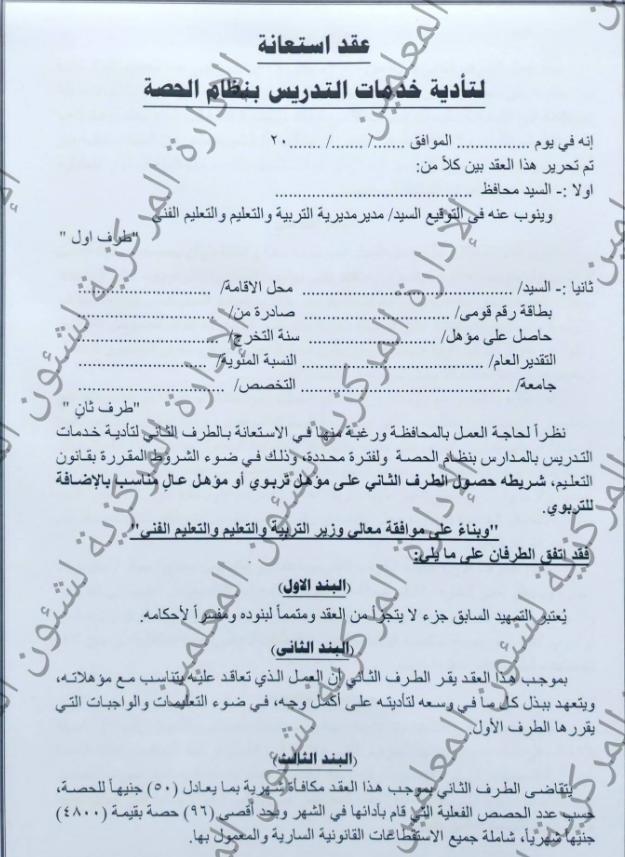 عقد استعانة
لتأدية خدمات التدريس بنظام الحصة
إنه في يوم ................ الموافق ....../ ....../ ......٢٠
تم تحرير هذا العقد بين كلاً من:
اولا :- السيد محافظ ........................................
وينوب عنه فى التوقيع السيد/ مدير مديرية التربية والتعليم والتعليم الفنى
"طرف اول "
ثانيا :- السيد/ .................................... محل الاقامة/ ..........................
بطاقة رقم قومى/ ............................ صادرة من/ ..........................
حاصل على مؤهل/ ............................ سنة التخرج/ ..........................
التقدير العام/ ............................ النسبة المئوية/ ..........................
جامعة/ .................................... التخصص/ ..........................
"طرف ثانٍ "
نظراً لحاجة العمل بالمحافظة ورغبة منها في الاستعانة بالطرف الثاني لتأدية خدمات
التدريس بالمدارس بنظام الحصة ولفترة محددة، وذلك في ضوء الشروط المقررة بقانون
التعليم، شريطه حصول الطرف الثاني على مؤهل تربوي أو مؤهل عالٍ مناسب بالإضافة
للتربوي.
"وبناءً على موافقة معالى وزير التربية والتعليم والتعليم الفنى"
فقد اتفق الطرفان على ما يلى:
(البند الاول)
يُعتبر التمهيد السابق جزء لا يتجزأ من العقد ومتمماً لبنوده ومفسراً لأحكامه.
(البند الثانى)
بموجب هذا العقد يقر الطرف الثاني أن العمل الذي تعاقد عليه يتناسب مع مؤهلاته،
ويتعهد ببذل كل ما في وسعه لتأديته على أكمل وجه، في ضوء التعليمات والواجبات التي
يقررها الطرف الأول.
(البند الثالث)
يتقاضى الطرف الثاني بموجب هذا العقد مكافأة شهرية بما يعادل (٥٠) جنيهاً للحصة،
حسب عدد الحصص الفعلية التي قام بأدائها في الشهر وبحد أقصى (٩٦) حصة بقيمة (٤٨٠٠)
جنيهاً شهرياً، شاملة جميع الاستقطاعات القانونية السارية والمعمول بها.
الإدارة المركزية لشئون المعلمين